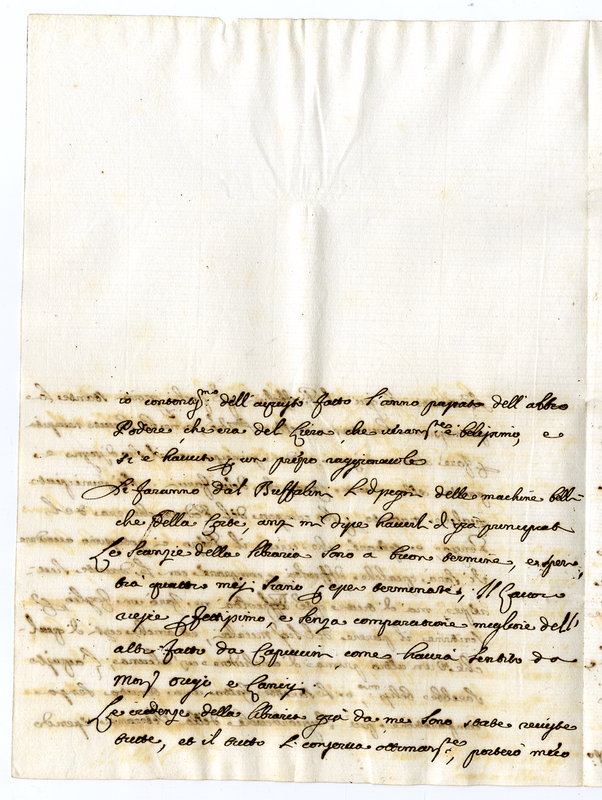 io contentis.mo dell'aquisto fatto l'anno passato dell'altro
Podere, che era del Ciero, che veram.te è belissimo, e
si è hauuto p un prezzo raggioneuole
Si faranno dal Buffalin li dissegni delle machine belli-
che della Corte, anzi mi disse hauerli di già principiati
Le Scanzie della libraria sono a buon termine, e sper
tra quattro mesi siano p esser terminate, Il lauor
riesce p fettissimo, e senza comparatione megliore dell'
altr fatto da Capuccin come haurà sentito da
Mons.r
Le credenze della libraria già da me sono state reuiste
tutte, et il tutto si conserua ottimam.te, porterò meco